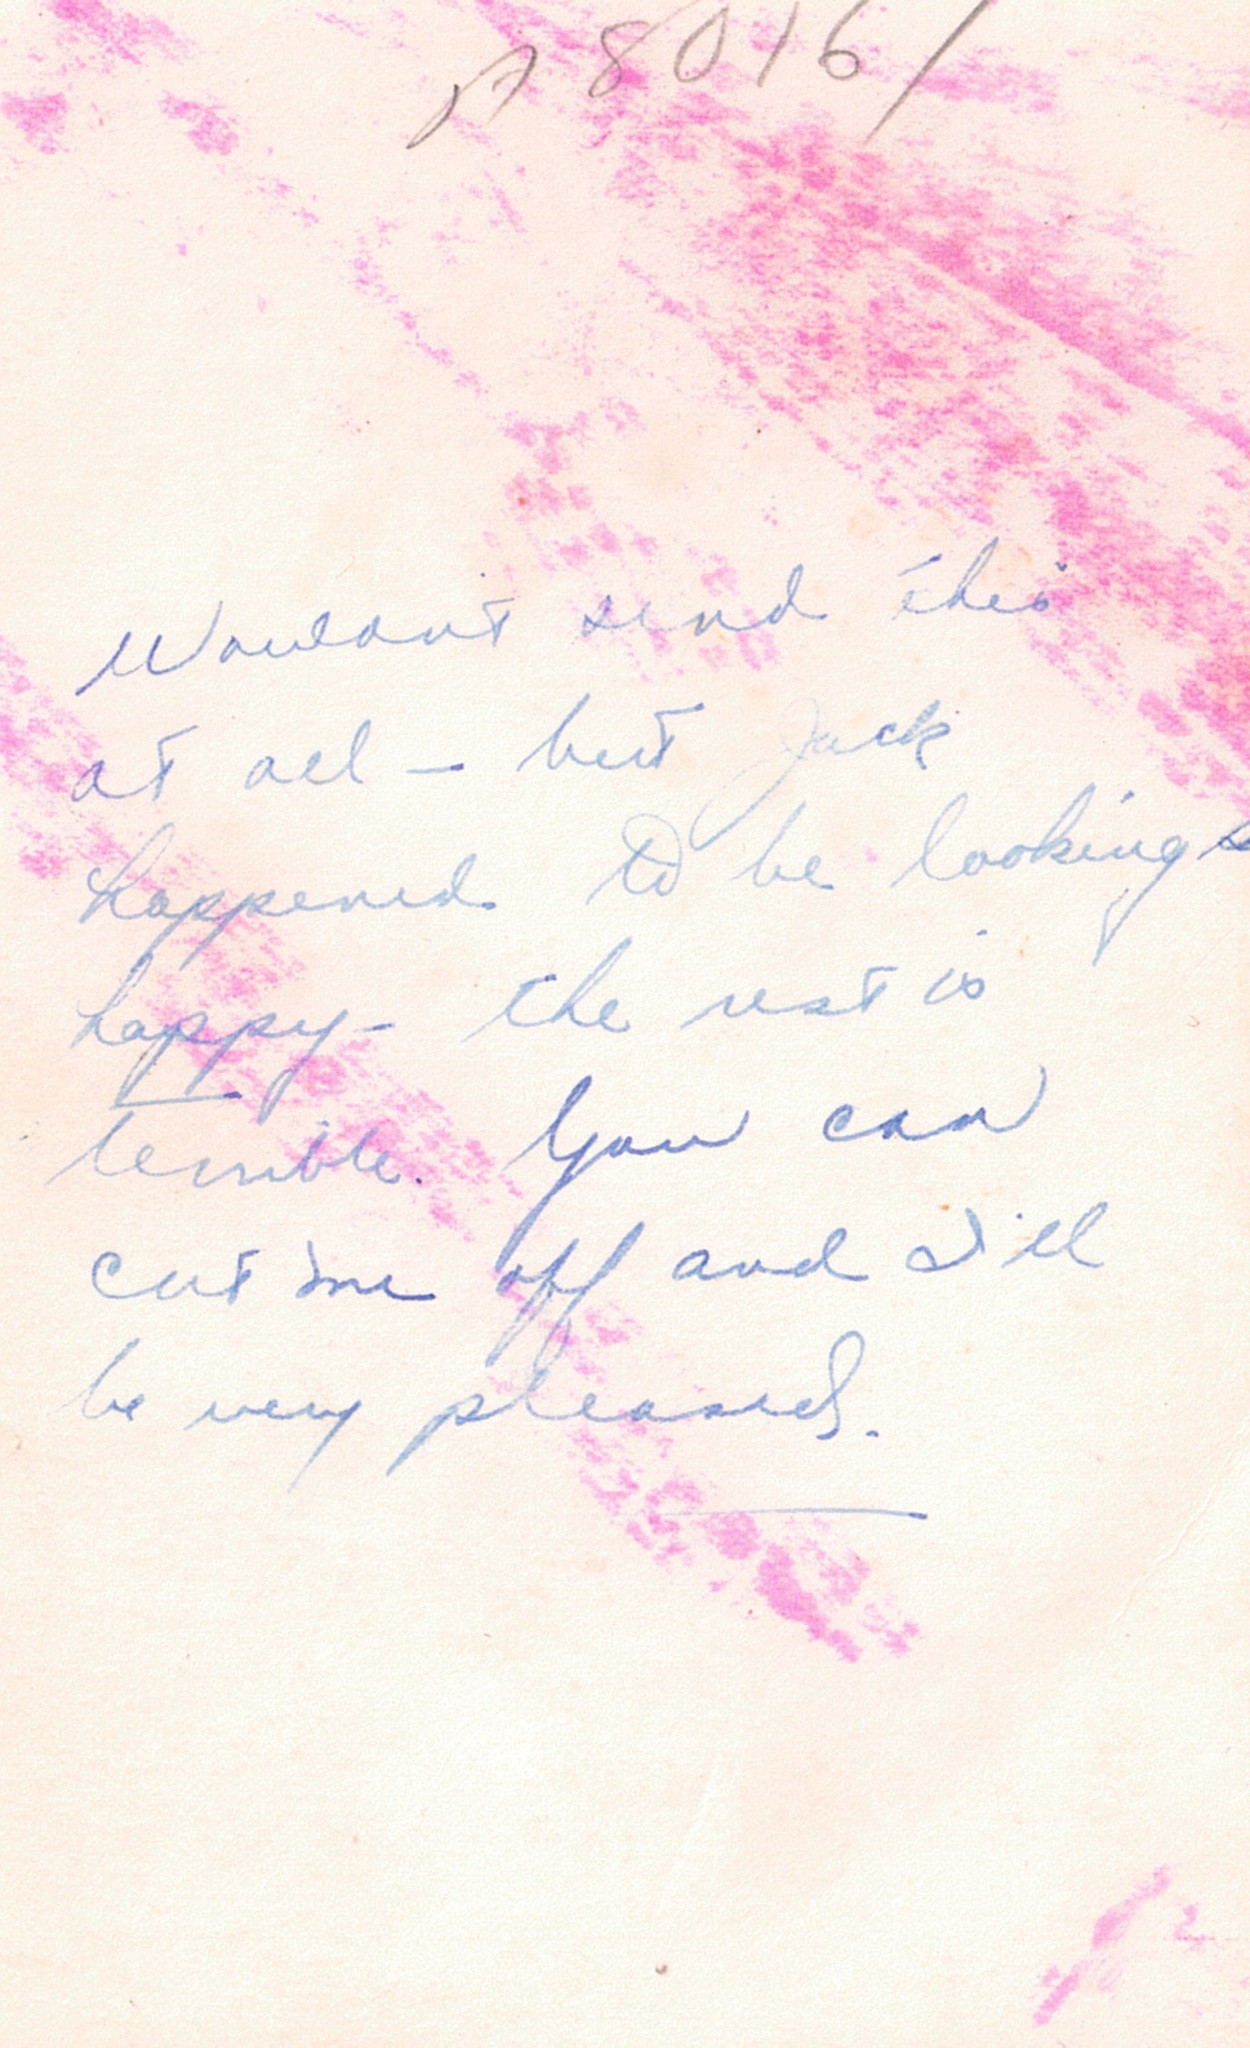 A8016/
Wouldn't send this
at all – but Jack
happened to be looking
happy – the rest is
terrible. You can
cut me off and I'll
be very pleased.